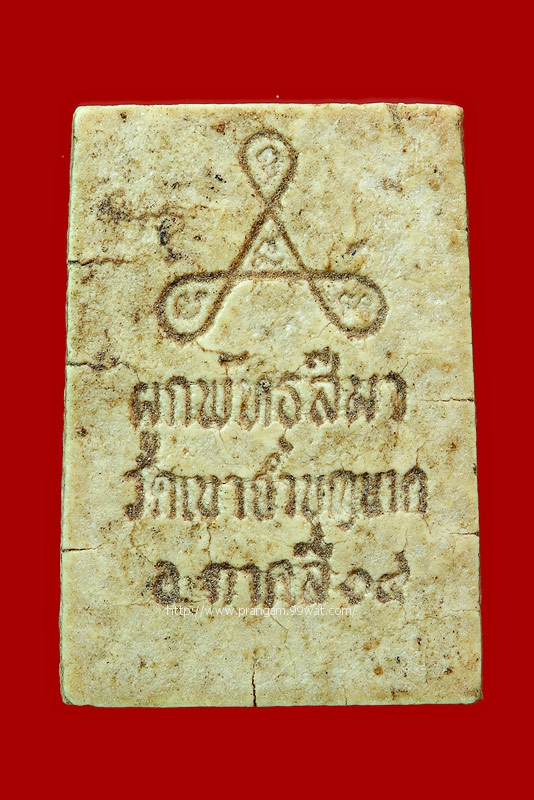 ผูกพัทธสีมา
วัดเขาถ้ำบุญนาค
อ.ตาคลี ๑๘
http://www.prangam.99wat.com/